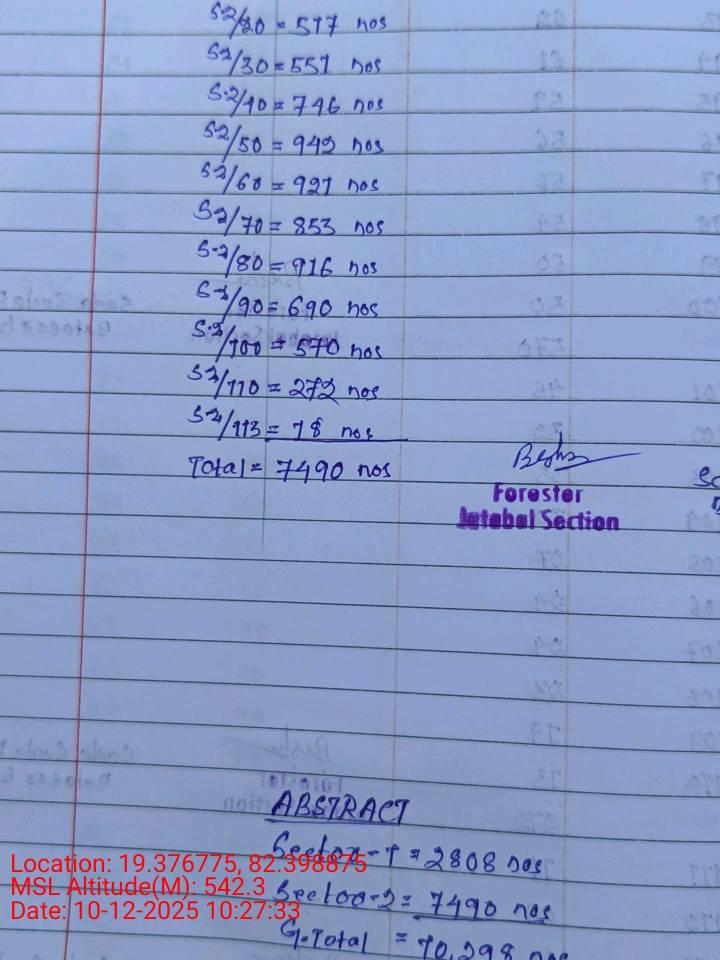 S2/20 = 517 nos
S2/30 = 551 nos
S-2/40 = 746 nos
S2/50 = 942 nos
S2/60 = 921 nos
S2/70 = 853 nos
S-2/80 = 916 nos
S2/90 = 690 nos
S-2/100 = 570 nos
S2/110 = 272 nos
S2/113 = 18 nos
Total = 7490 nos
Forester
Jatabal Section
ABSTRACT
Sector-1 = 2808 nos
Sector-2 = 7490 nos
G.Total = 10,298 nos
Location: 19.376775, 82.398875
MSL Altitude(M): 542.3
Date: 10-12-2025 10:27:33